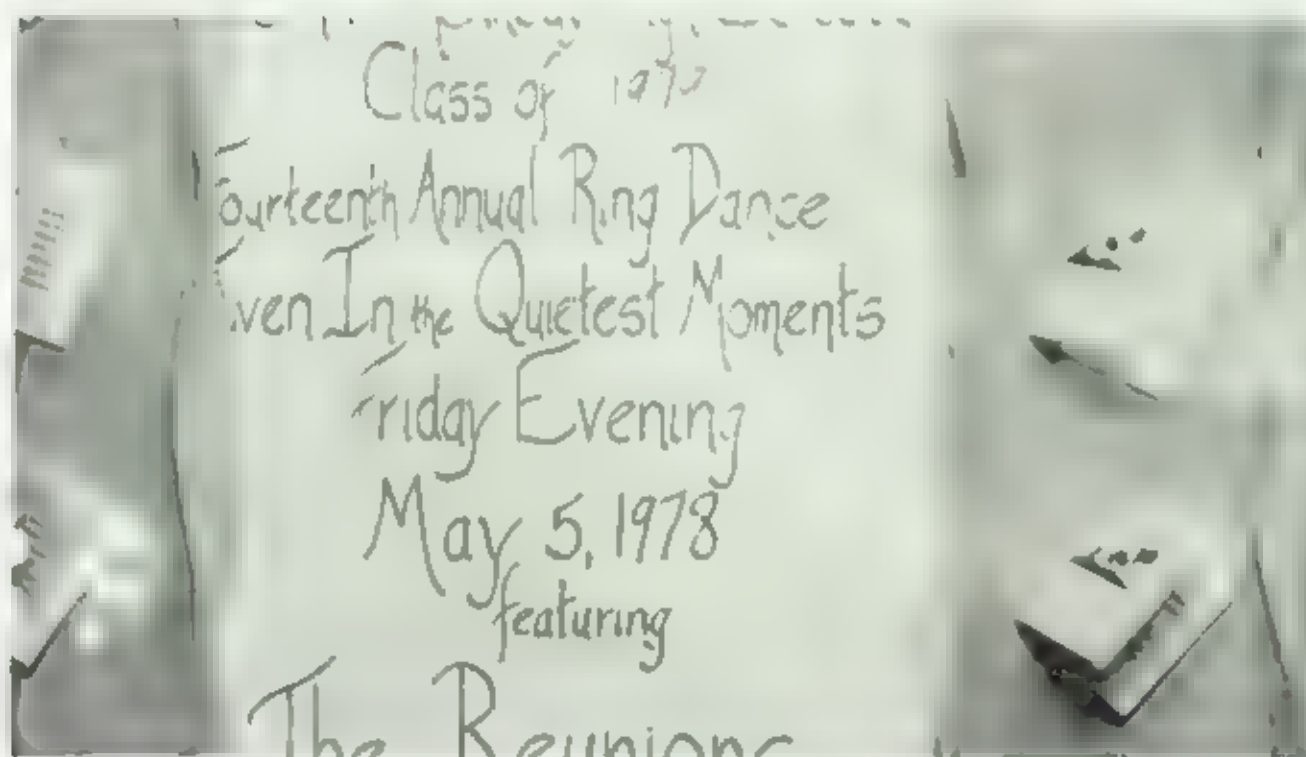 Class of
Fourteenth Annual Ring Dance
Even In the Quietest Moments
Friday Evening
May 5, 1978
featuring
The Reunions